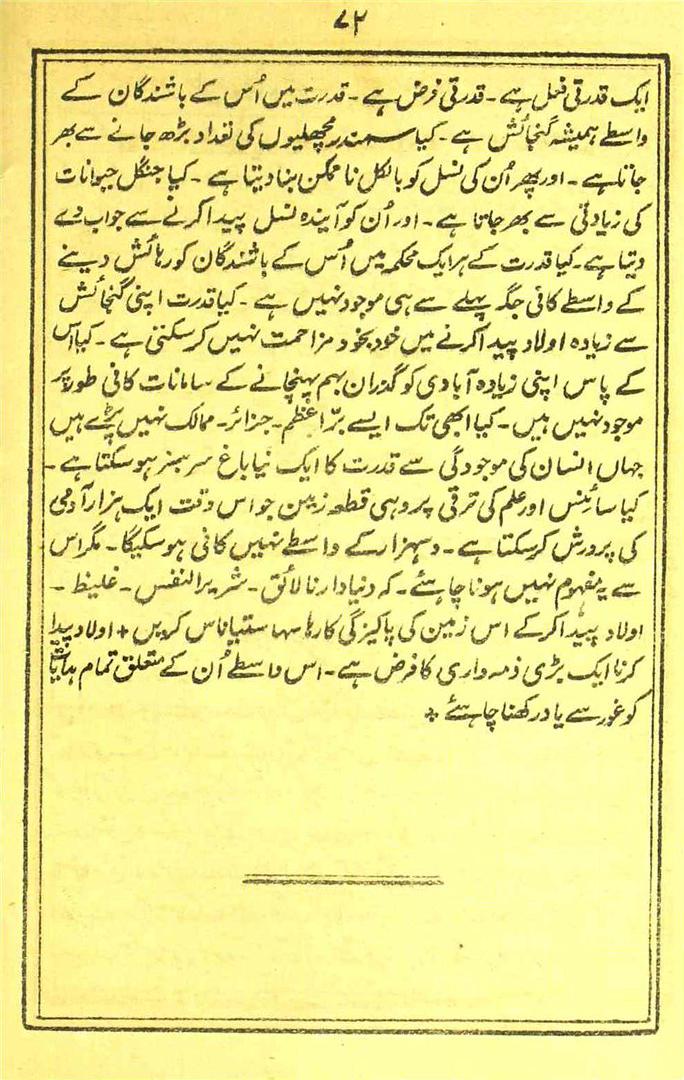 ۷۲
ایک قدرتی فعل ہے ۔ قدرتی فرض ہے ۔ قدرت میں اُس کے باشندگان کے
واسطے ہمیشہ گنجائش ہے ۔ کیا سمندر مچھلیوں کی تعداد بڑھ جانے سے بھر
جاتا ہے ۔ اور پھر اُن کی نسل کو بالکل ناممکن بنا دیتا ہے ۔ کیا جنگل حیوانات
کی زیادتی سے بھر جاتا ہے ۔ اور اُن کو آیندہ نسل پیدا کرنے سے جواب دے
دیتا ہے ۔ کیا قدرت کے ہر ایک محکمہ میں اُس کے باشندگان کو رہائش دینے
کے واسطے کافی جگہ پہلے سے ہی موجود نہیں ہے ۔ کیا قدرت اپنی گنجائش
سے زیادہ اولاد پیدا کرنے میں خود بخود مزاحمت نہیں کر سکتی ہے ۔ کیا اس
کے پاس اپنی زیادہ آبادی کو گذران بہم پہنچانے کے سامانات کافی طور پر
موجود نہیں ہیں ۔ کیا ابھی تک ایسے برّاعظم ۔ جزائر ۔ ممالک نہیں پڑے ہیں
جہاں انسان کی موجودگی سے قدرت کا ایک نیا باغ سرسبز ہو سکتا ہے ۔
کیا سائینس اور علم کی ترقی پر وہی قطعہ زمین جو اس وقت ایک ہزار آدمی
کی پرورش کر سکتا ہے ۔ دسہزار کے واسطے نہیں کافی ہو سکیگا ۔ مگر اس
سے یہ مفہوم نہیں ہونا چاہئے ۔ کہ دنیادار نالائق ۔ شریر النفس ۔ غلیظ ۔
اولاد پیدا کر کے اس زمین کی پاکیزگی کا رہا سہا ستیاناس کر دیں + اولاد پیدا
کرنا ایک بڑی ذمہ واری کا فرض ہے ۔ اس واسطے اُن کے متعلق تمام ہدایات
کو غور سے یاد رکھنا چاہئے +